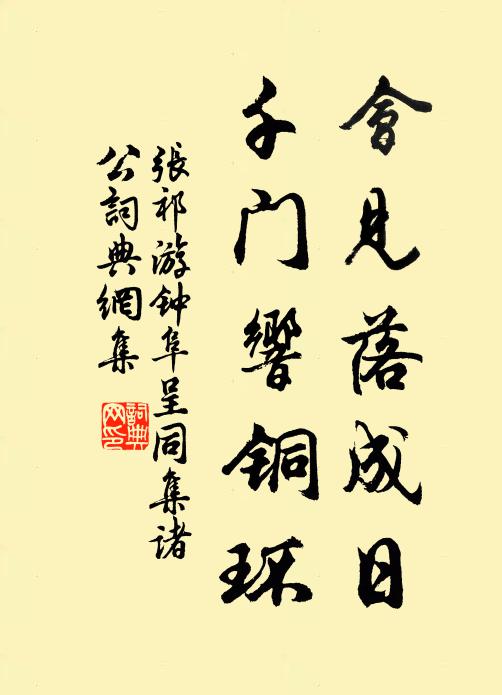 會見落成日
千门響铜环
張祁游钟阜呈同集诸
公詞典網集
詞典
网印